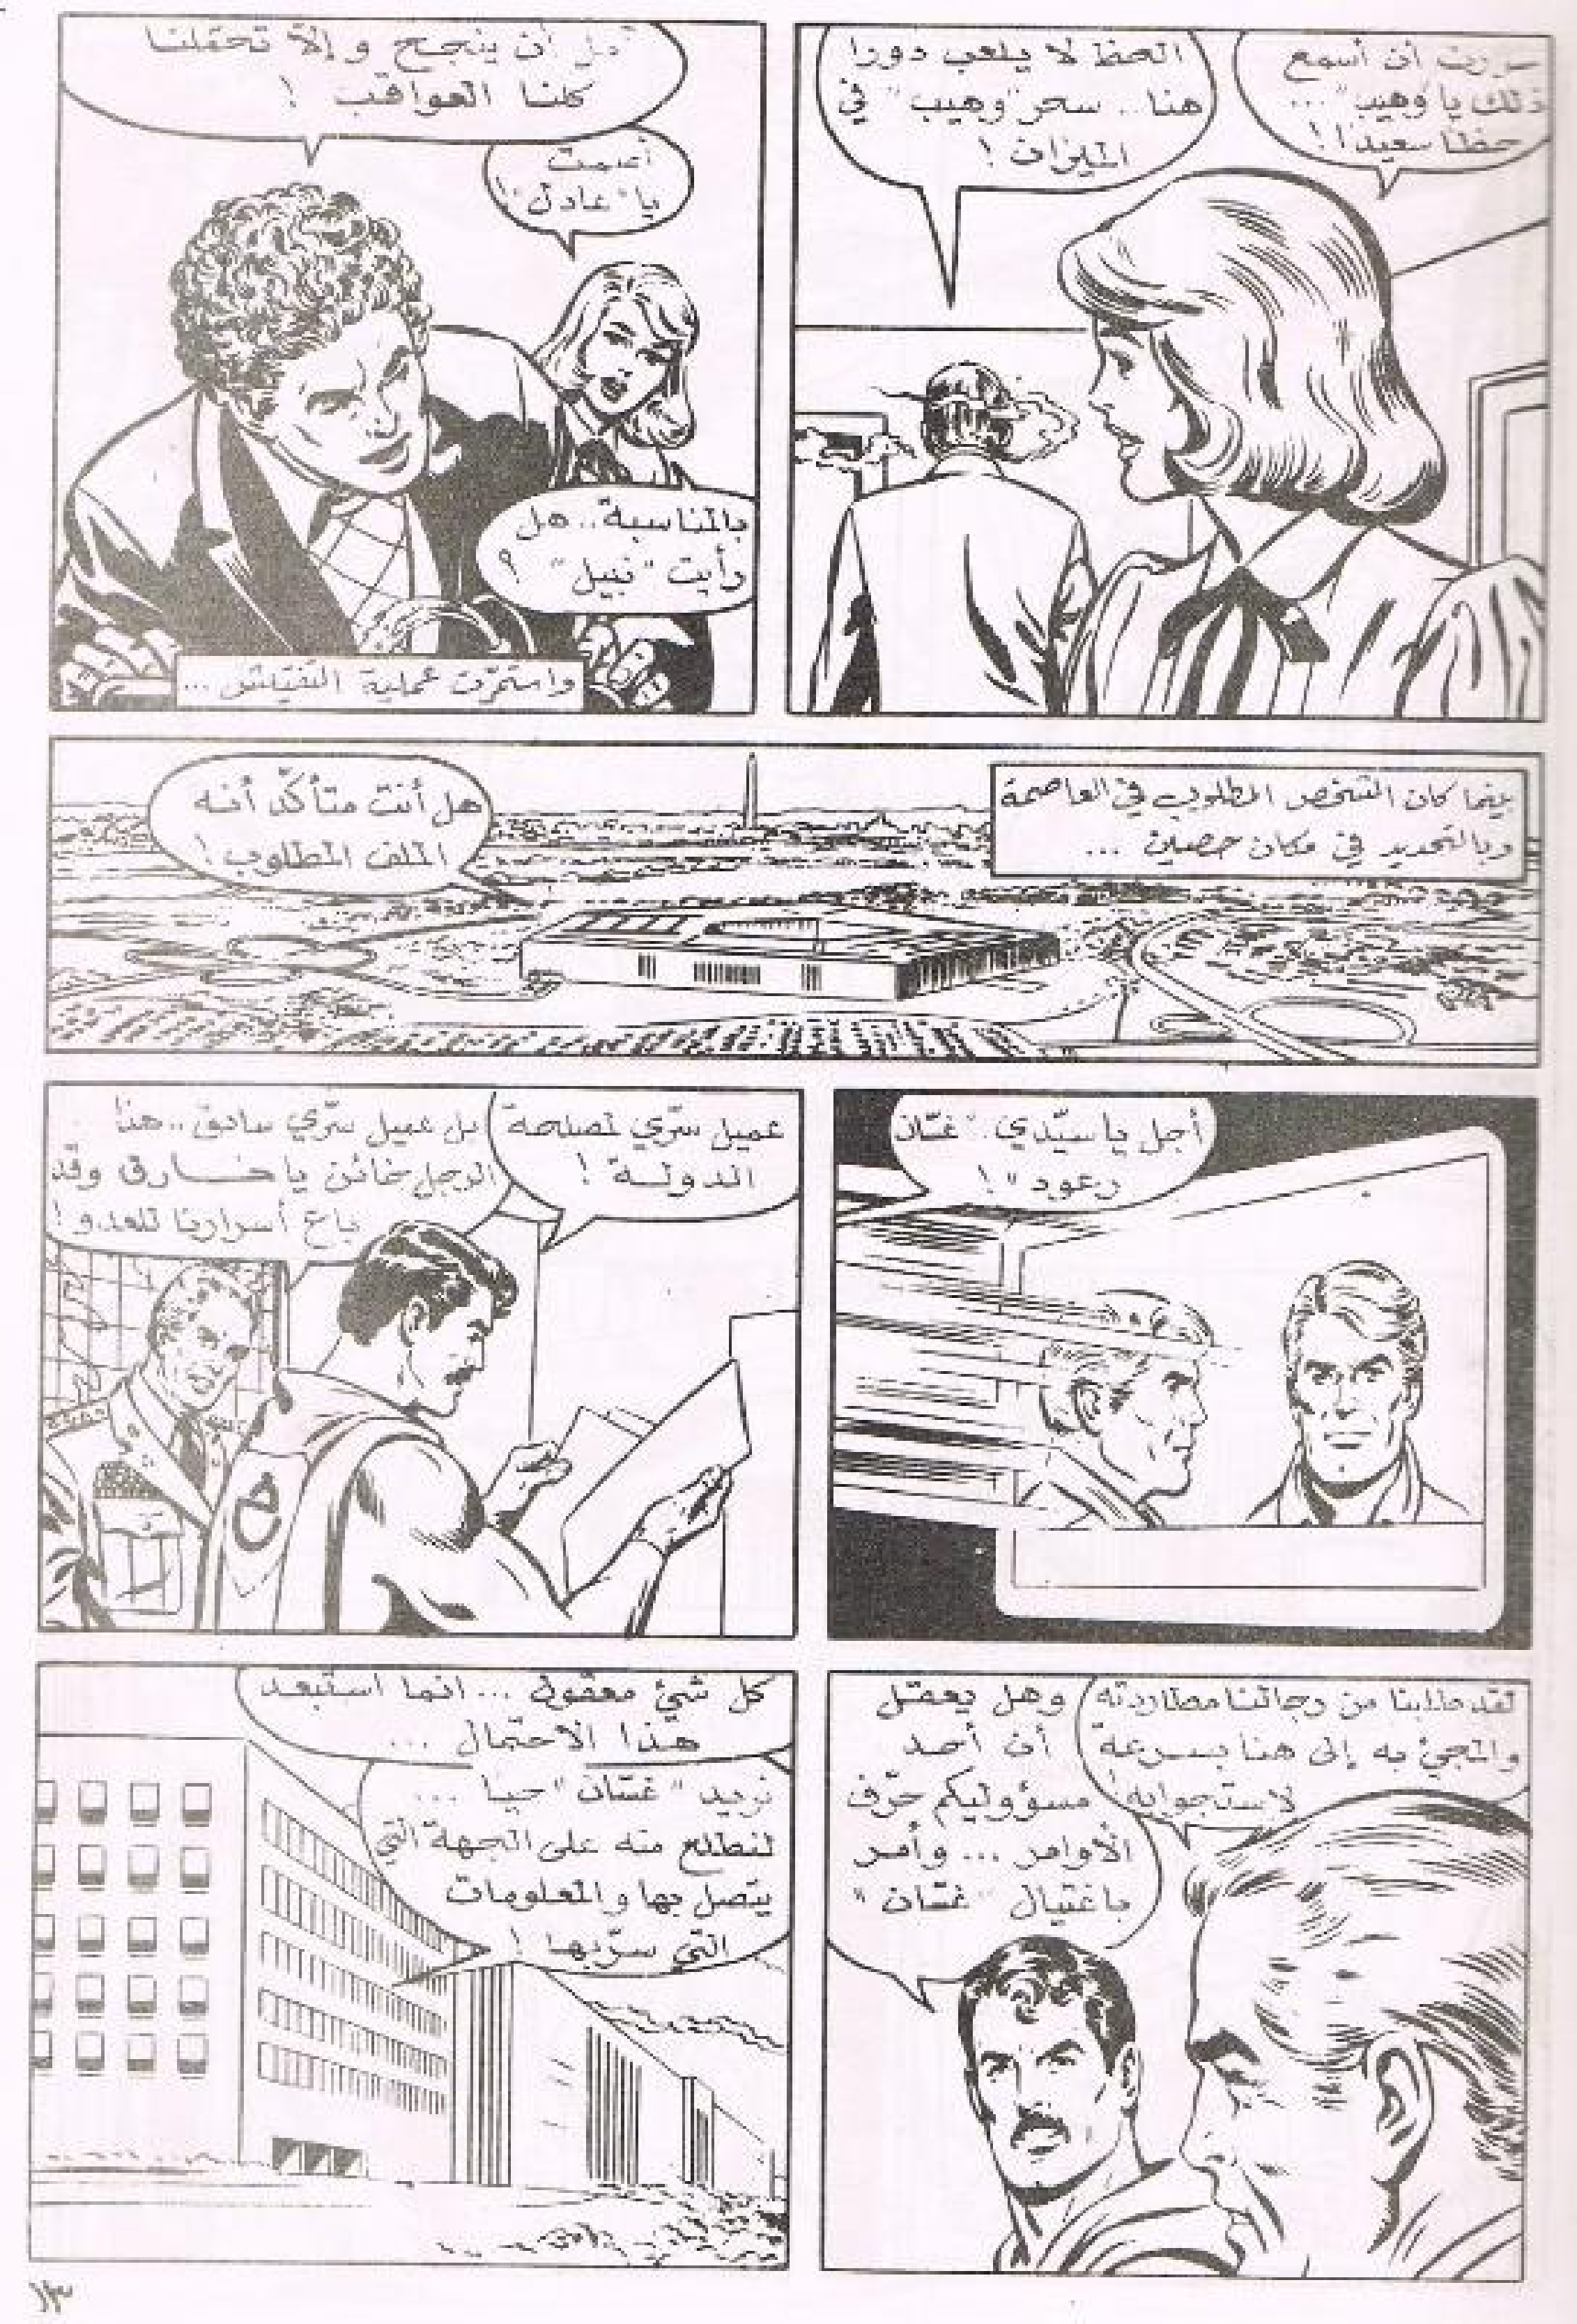 سررت أن أسمع
ذلك يا "وهيب"...
حظا سعيدا!
الحظ لا يلعب دورا
هنا.. سحر "وهيب" في
الميزان!
آمل أن ينجح وإلا تحملنا
كلنا العواقب!
يا "عادل"!
بالمناسبة.. هل
رأيت "نبيل"؟
واستمرّت عملية التفتيش...
بينما كان الشخص المطلوب في العاصمة
وبالتحديد في مكان حصين...
هل أنت متأكّد أنه
الملف المطلوب!
أجل يا سيّدي. "غسّان
رعود"!
عميل سرّي لمصلحة
الدولة!
بل عميل سرّي سابق.. هذا
الرجل خائن يا خارق وقد
باع أسرارنا للعدو!
لقد طلبنا من رجالنا مطاردته
والمجيئ به إلى هنا بسرعة
لاستجوابه!
وهل يعقل
أن أحد
مسؤوليكم حرّف
الأوامر... وأمر
باغتيال "غسّان"
كل شيئ معقول... انما استبعد
هذا الاحتمال...
نريد "غسّان" حيا...
لنطلع منه على الجهة التي
يتصل بها والمعلومات
التي سرّبها!
١٣